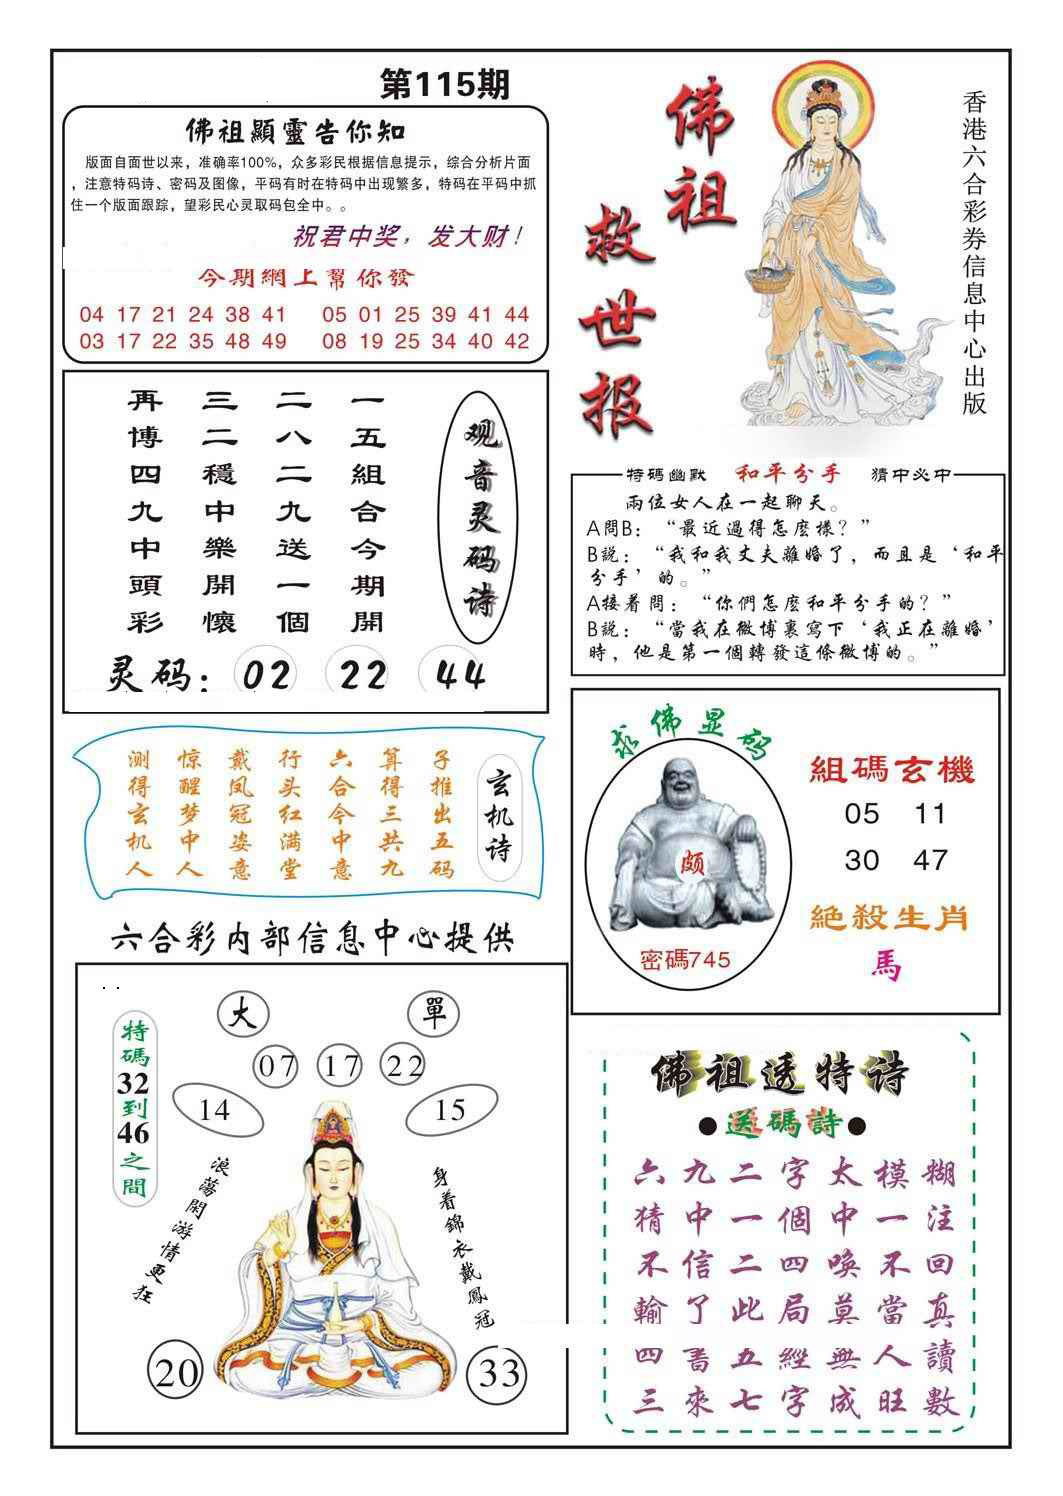 第115期
佛祖顯靈告你知
版面自面世以来，准确率100%，众多彩民根据信息提示，综合分析片面
，注意特码诗、密码及图像，平码有时在特码中出现繁多，特码在平码中抓
住一个版面跟踪，望彩民心灵取码包全中。。
祝君中奖，发大财！
今期網上幫你發
04 17 21 24 38 41 05 01 25 39 41 44
03 17 22 35 48 49 08 19 25 34 40 42
佛祖
救世报
香港六合彩券信息中心出版
观音灵码诗
一五組合今期開
二八二九送一個
三二穩中樂開懷
再博四九中頭彩
灵码：02 22 44
特碼幽默 和平分手 猜中必中
兩位女人在一起聊天。
A問B：“最近過得怎麽樣？”
B説：“我和我丈夫離婚了，而且是‘和平
分手’的。”
A接着問：“你們怎麽和平分手的？”
B説：“當我在微博裏寫下‘我正在離婚’
時，他是第一個轉發這條微博的。”
玄机诗
子推出五码
算得三共九
六合今中意
行头红满堂
戴凤冠姿意
惊醒梦中人
测得玄机人
求佛显码
颇
密碼745
組碼玄機
05 11
30 47
絕殺生肖
馬
六合彩内部信息中心提供
特碼32到46之間
大
單
07 17 22
14
15
浪蕩閑游情更狂
身着錦衣戴鳳冠
20
33
佛祖透特诗
●送碼詩●
六九二字太模糊
猜中一個中一注
不信二四喚不回
輸了此局莫當真
四書五經無人讀
三來七字成旺數